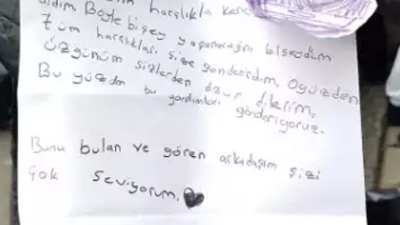 harçlıkla
aldım Böyle bişey yaşanacağını bilseydim
tüm harçlıkları size gönderirdim, Oyüzden
Üzgünüm sizlerden özür dilerim,
Bu yüzden bu yardımları gönderiyoruz.
Bunu bulan ve gören arkadaşım sizi
çok seviyorum,